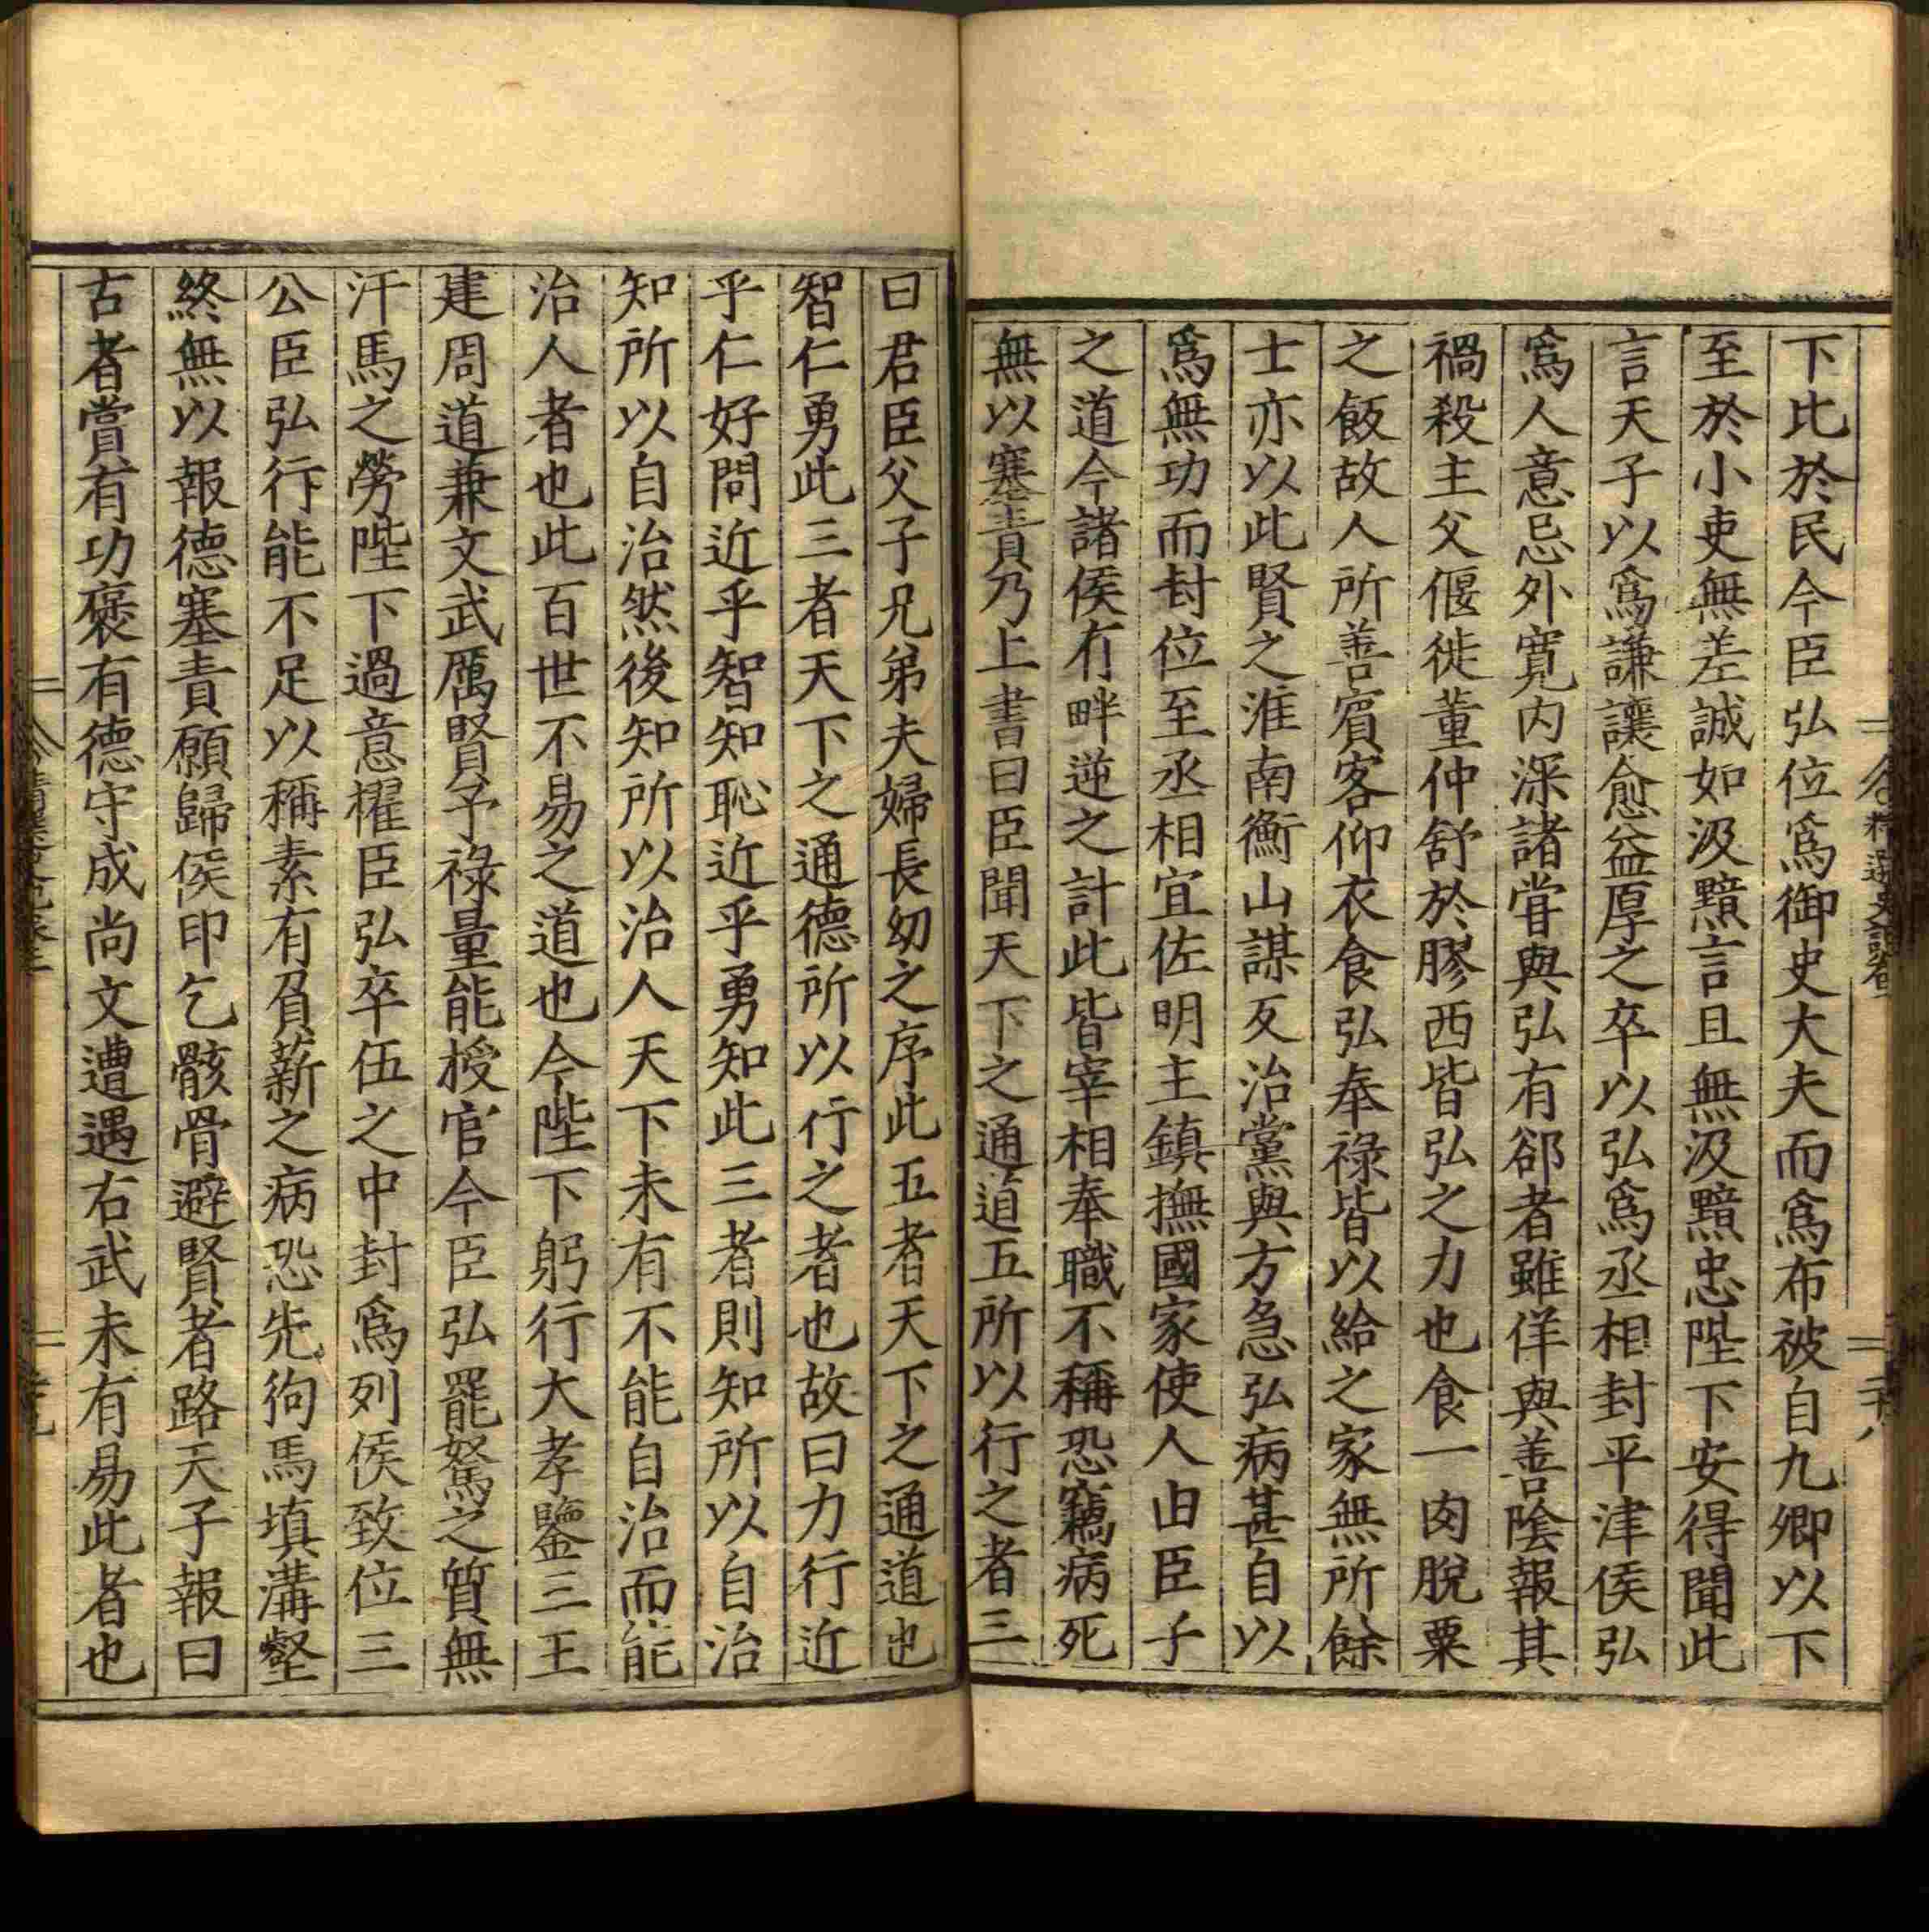 下比於民今臣弘位爲御史大夫而爲布被自九卿以下
至於小吏無差誠如汲黯言且無汲黯忠陛下安得聞此
言天子以爲謙讓愈益厚之卒以弘爲丞相封平津侯弘
爲人意忌外寛内深諸甞與弘有郤者雖佯與善陰報其
禍殺主父偃徙董仲舒於膠西皆弘之力也食一肉脫粟
之飯故人所善賓客仰衣食弘奉祿皆以給之家無所餘
士亦以此賢之淮南衡山謀反治黨與方急弘病甚自以
爲無功而封位至丞相宜佐明主鎮撫國家使人由臣子
之道今諸侯有畔逆之計此皆宰相奉職不稱恐竊病死
無以塞責乃上書曰臣聞天下之通道五所以行之者三
曰君臣父子兄弟夫婦長幼之序此五者天下之通道也
智仁勇此三者天下之通德所以行之者也故曰力行近
乎仁好問近乎智知恥近乎勇知此三者則知所以自治
知所以自治然後知所以治人天下未有不能自治而能
治人者也此百世不易之道也今陛下躬行大孝鑒三王
建周道兼文武厲賢予祿量能授官今臣弘罷駑之質無
汗馬之勞陛下過意擢臣弘卒伍之中封爲列侯致位三
公臣弘行能不足以稱素有負薪之病恐先狗馬填溝壑
終無以報德塞責願歸侯印乞骸骨避賢者路天子報曰
古者賞有功褒有德守成尚文遭遇右武未有易此者也